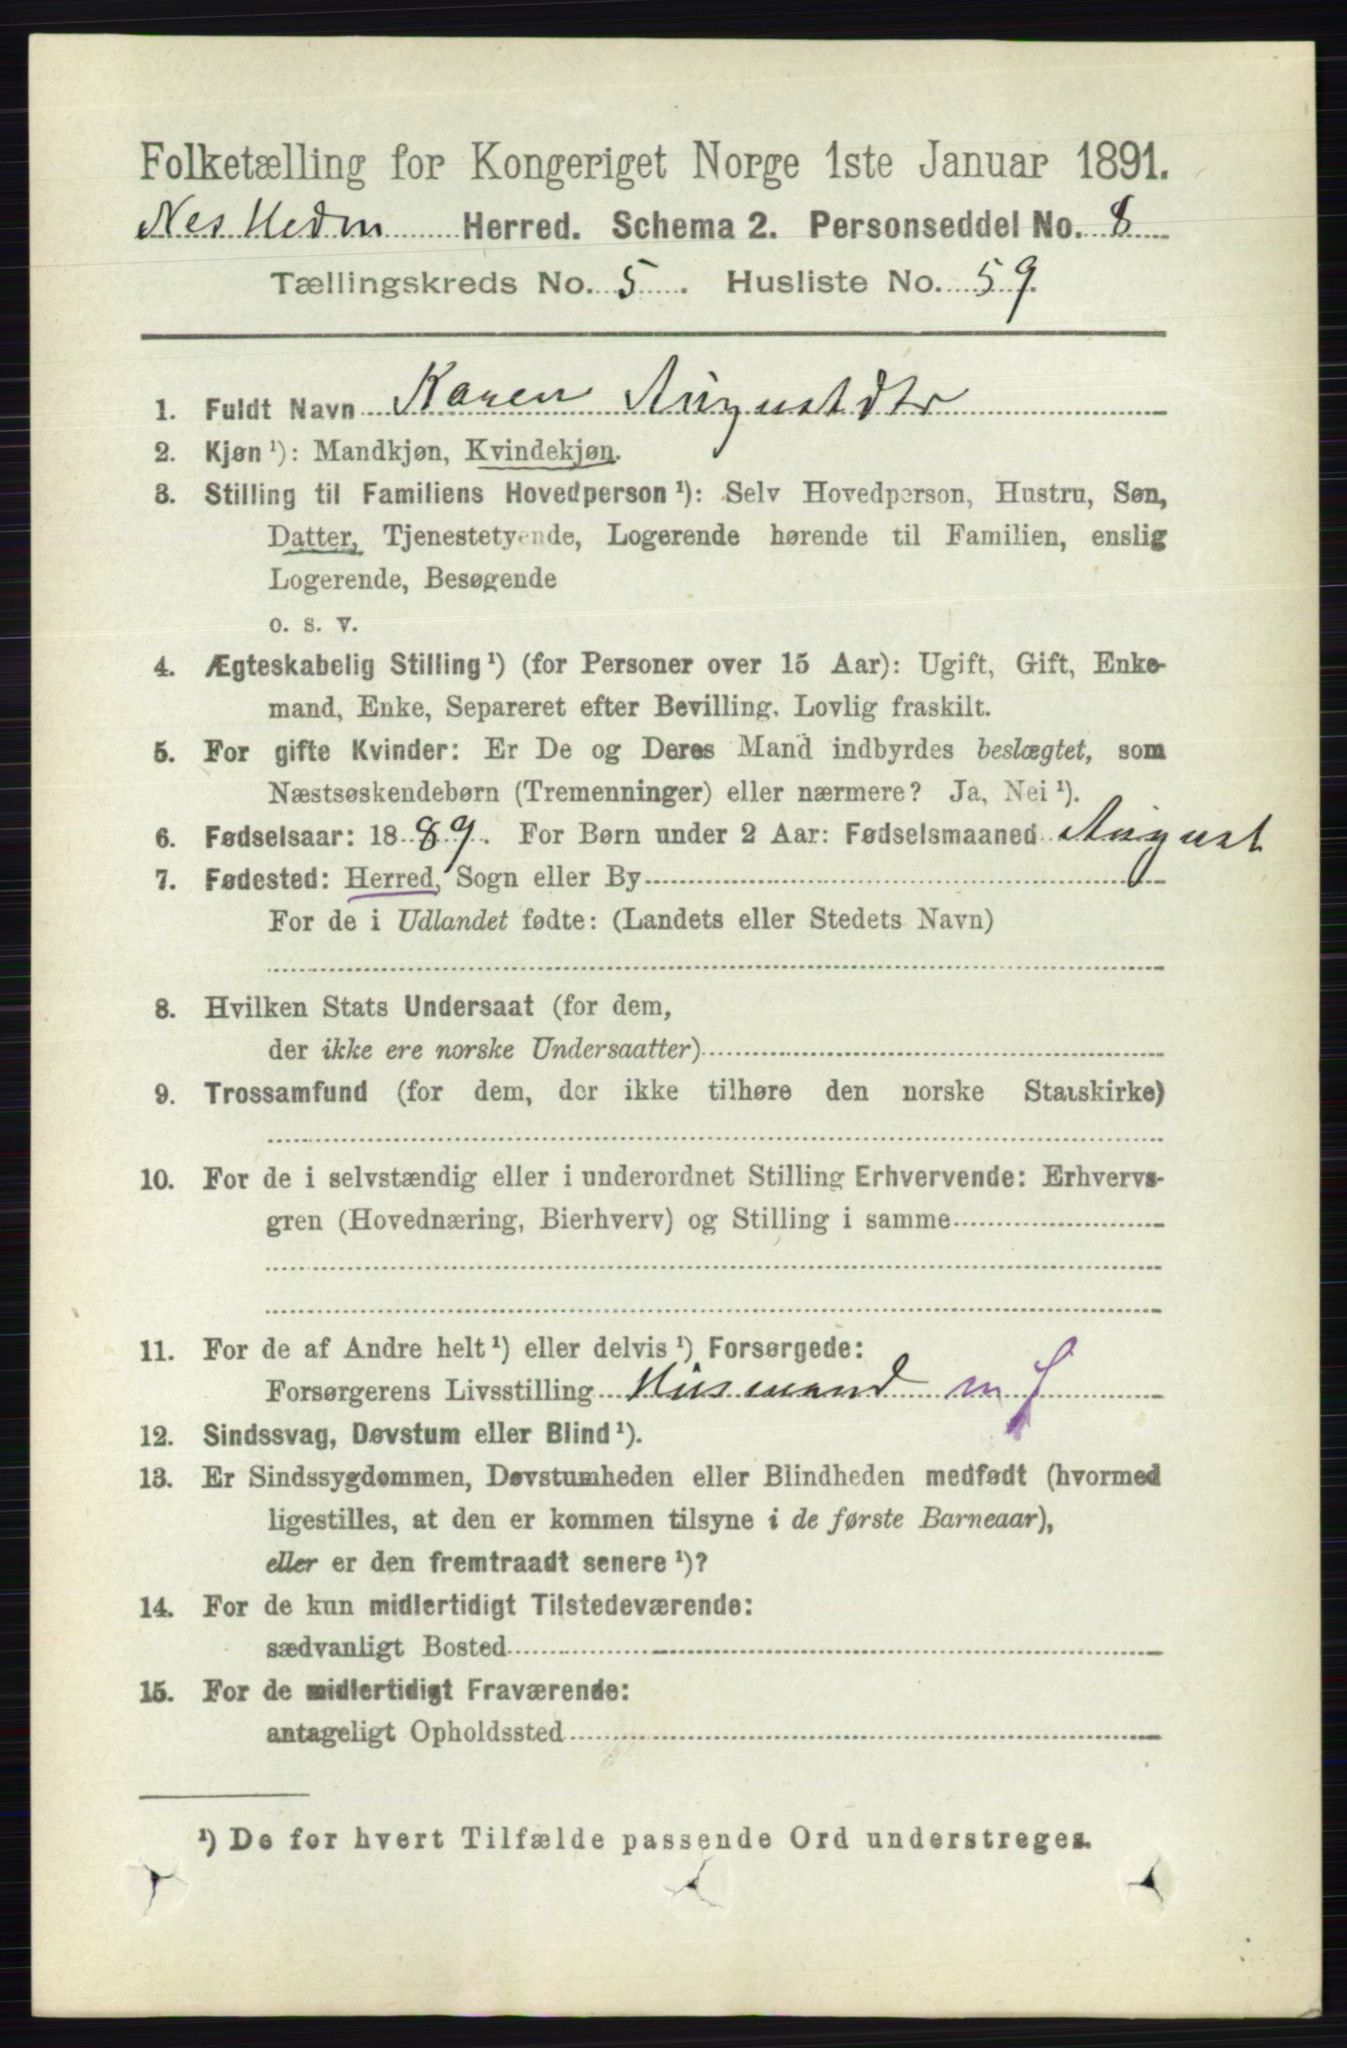 Folketælling for Kongeriget Norge 1ste Januar 1891.
Nes Hedm Herred. Schema 2. Personseddel No. 8
Tællingskreds No. 5. Husliste No. 59.
1. Fuldt Navn Karen Augustdtr
2. Kjøn ¹): Mandkjøn, Kvindekjøn.
3. Stilling til Familiens Hovedperson ¹): Selv Hovedperson, Hustru, Søn,
Datter, Tjenestetyende, Logerende hørende til Familien, enslig
Logerende, Besøgende
o. s. v.
4. Ægteskabelig Stilling ¹) (for Personer over 15 Aar): Ugift, Gift, Enke-
mand, Enke, Separeret efter Bevilling. Lovlig fraskilt.
5. For gifte Kvinder: Er De og Deres Mand indbyrdes beslægtet, som
Næstsøskendebørn (Tremenninger) eller nærmere? Ja, Nei ¹).
6. Fødselsaar: 1889. For Børn under 2 Aar: Fødselsmaaned August
7. Fødested: Herred, Sogn eller By
For de i Udlandet fødte: (Landets eller Stedets Navn)
8. Hvilken Stats Undersaat (for dem,
der ikke ere norske Undersaatter)
9. Trossamfund (for dem, der ikke tilhøre den norske Statskirke)
10. For de i selvstændig eller i underordnet Stilling Erhvervende: Erhvervs-
gren (Hovednæring, Bierhverv) og Stilling i samme
11. For de af Andre helt ¹) eller delvis ¹) Forsørgede:
Forsørgerens Livsstilling Husmand m J
12. Sindssvag, Døvstum eller Blind ¹).
13. Er Sindssygdommen, Døvstumheden eller Blindheden medfødt (hvormed
ligestilles, at den er kommen tilsyne i de første Barneaar),
eller er den fremtraadt senere ¹)?
14. For de kun midlertidigt Tilstedeværende:
sædvanligt Bosted
15. For de midlertidigt Fraværende:
antageligt Opholdssted
¹) De for hvert Tilfælde passende Ord understreges.